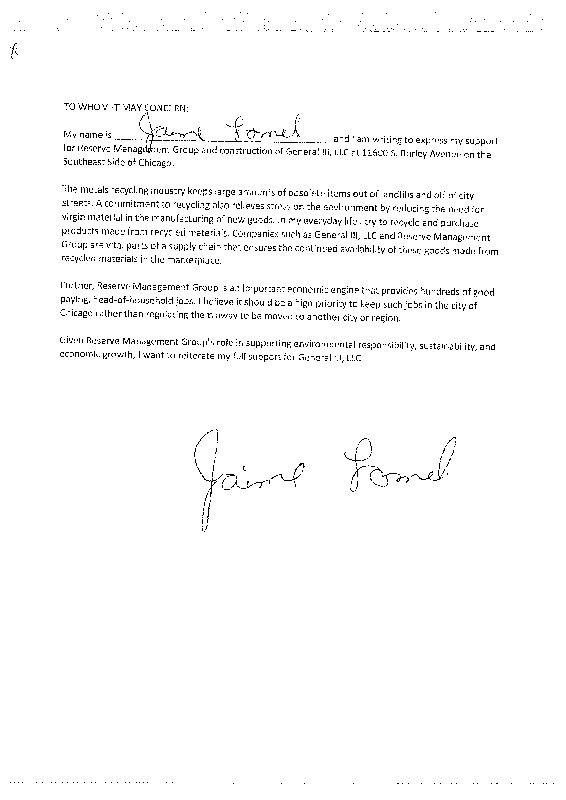 TO WHOM IT MAY CONCERN:
My name is Jaime Lomel and I am writing to express my support
for Reserve Management Group and construction of General III, LLC at 11600 S. Burley Avenue on the
Southeast Side of Chicago.
The metals recycling industry keeps large amounts of obsolete items out of landfills and off of city
streets. A commitment to recycling also relieves stress on the environment by reducing the need for
virgin material in the manufacturing of new goods. In my everyday life I try to recycle and purchase
products made from recycled materials. Companies such as General III, LLC and Reserve Management
Group are vital parts of a supply chain that ensures the continued availability of these goods made from
recycled materials in the marketplace.
Further, Reserve Management Group is an important economic engine that provides hundreds of good
paying, head-of-household jobs. I believe it should be a high priority to keep such jobs in the city of
Chicago rather than regulating them away to be moved to another city or region.
Given Reserve Management Group's role in supporting environmental responsibility, sustainability, and
economic growth, I want to reiterate my full support for General III, LLC
Jaime Lomel